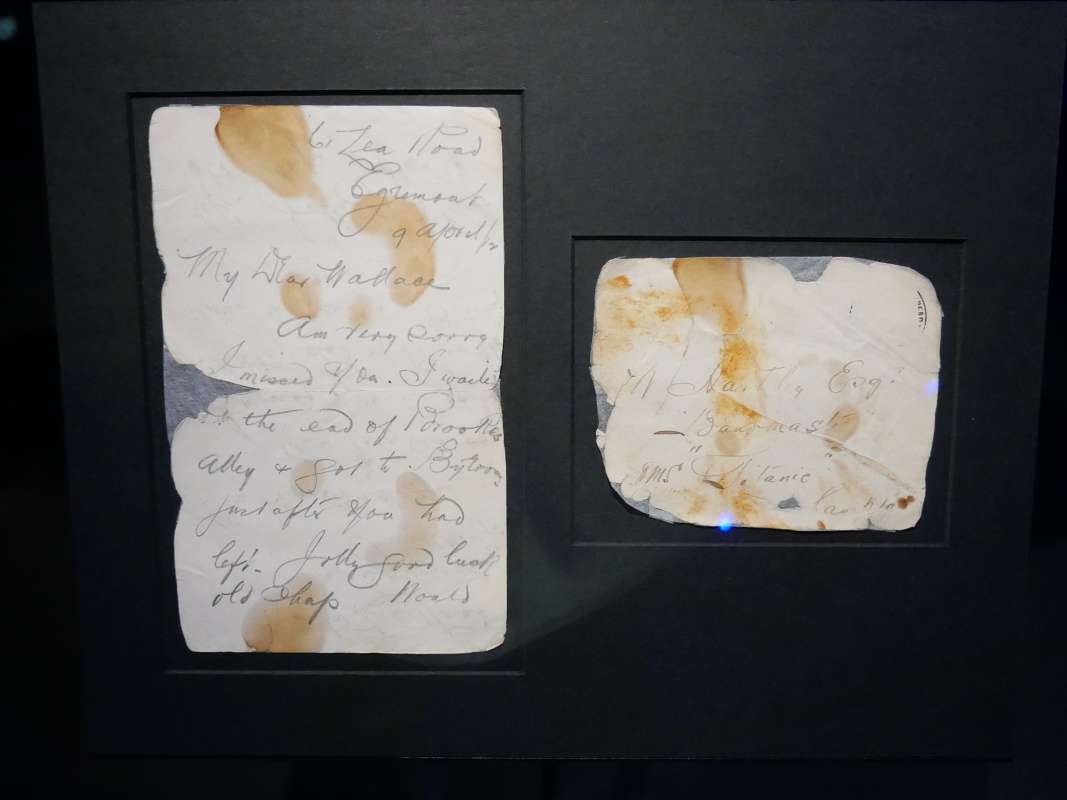 61 Lea Road
Egremont
9 April/12
My Dear Wallace
Am very sorry
I missed you. I waited
the end of Brookes
Alley & got to Bytroms
just after you had
left. Jolly good luck
old chap Would
W Hartley Esq.
Bandmaster
RMS "Titanic"